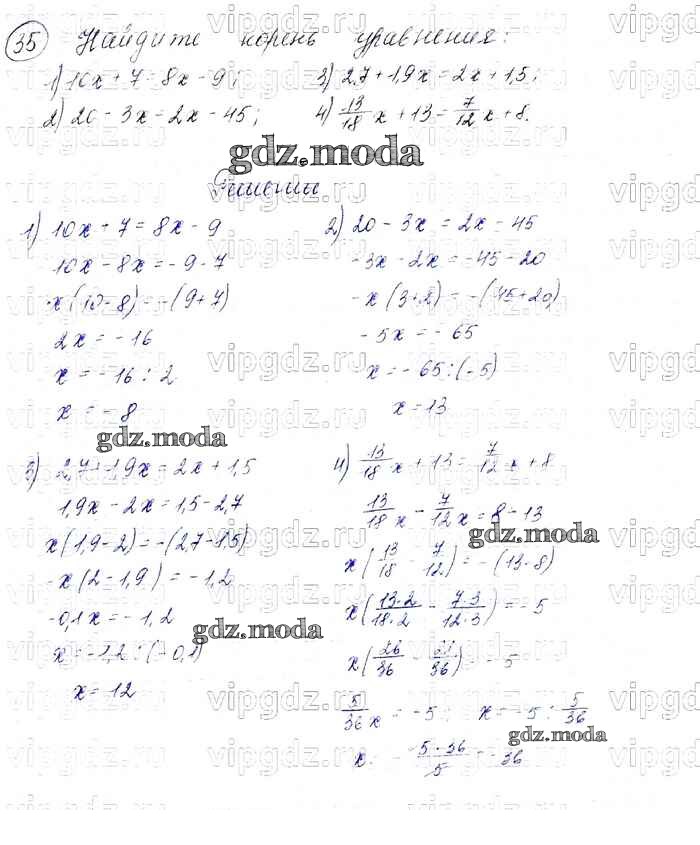 35 Найдите корень уравнения:
1) 10x + 7 = 8x - 9; 3) 2,7 + 1,9x = 2x + 1,5;
2) 20 - 3x = 2x - 45; 4) 13/18 x + 13 = 7/12 x + 8.
gdz.moda
Решении
1) 10x + 7 = 8x - 9
10x - 8x = - 9 - 7
x(10 - 8) = -(9 + 7)
2x = - 16
x = - 16 : 2
x = - 8
2) 20 - 3x = 2x - 45
-3x - 2x = -45 - 20
-x(3+2) = -(45+20)
- 5x = - 65
x = - 65 : (- 5)
x = 13
gdz.moda
3) 2,7 + 1,9x = 2x + 1,5
1,9x - 2x = 1,5 - 2,7
x(1,9 - 2) = -(2,7 - 1,5)
-x(2 - 1,9) = - 1,2
-0,1x = - 1,2
x = -1,2 : (-0,1)
x = 12
4) 13/18 x + 13 = 7/12 x + 8
13/18 x - 7/12 x = 8 - 13
gdz.moda
x(13/18 - 7/12) = -(13-8)
x(13·2/18·2 - 7·3/12·3) = - 5
x(26/36 - 21/36) = - 5
5/36 x = - 5; x = - 5 : 5/36
gdz.moda
x = - 5·36/5 = - 36
vipgdz.ru